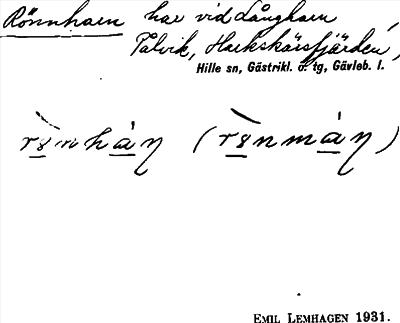 Rönnharn har vid Långharn,
Tälvik, Harkskärsfjärden,
Hille sn, Gästrikl. o. tg, Gävleb. l.
EMIL LEMHAGEN 1931.